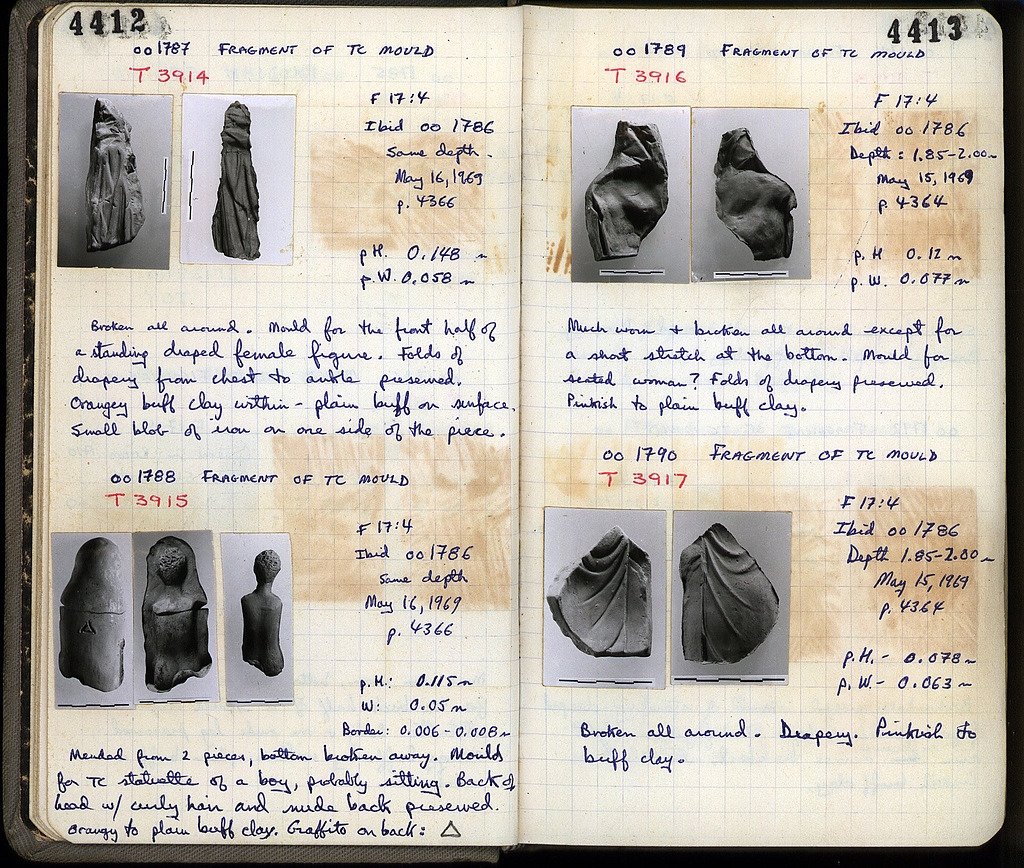 4412
oo 1787 FRAGMENT OF TC MOULD
T 3914
F 17:4
Ibid oo 1786
Same depth.
May 16, 1969
p. 4366
p.H. 0.148 m
p.W. 0.058 m
Broken all around. Mould for the front half of
a standing draped female figure. Folds of
drapery from chest to ankle preserved.
Orangey buff clay within - plain buff on surface.
Small blob of iron on one side of the piece.
oo 1788 FRAGMENT OF TC MOULD
T 3915
F 17:4
Ibid oo 1786
Same depth
May 16, 1969
p. 4366
p.H.: 0.115 m
W: 0.05 m
Border: 0.006 - 0.008 m
Mended from 2 pieces, bottom broken away. Moulds
for TC statuette of a boy, probably sitting. Back of
head w/ curly hair and nude back preserved.
Orangy to plain buff clay. Graffito on back: △
4413
oo 1789 FRAGMENT OF TC MOULD
T 3916
F 17:4
Ibid oo 1786
Depth: 1.85-2.00 m
May 15, 1969
p. 4364
p.H 0.12 m
p.W. 0.077 m
Much worn + broken all around except for
a short stretch at the bottom. Mould for
seated woman? Folds of drapery preserved.
Pinkish to plain buff clay.
oo 1790 FRAGMENT OF TC MOULD
T 3917
F 17:4
Ibid oo 1786
Depth 1.85-2.00 m
May 15, 1969
p. 4364
p.H. - 0.078 m
p.W. - 0.063 m
Broken all around. Drapery. Pinkish to
buff clay.